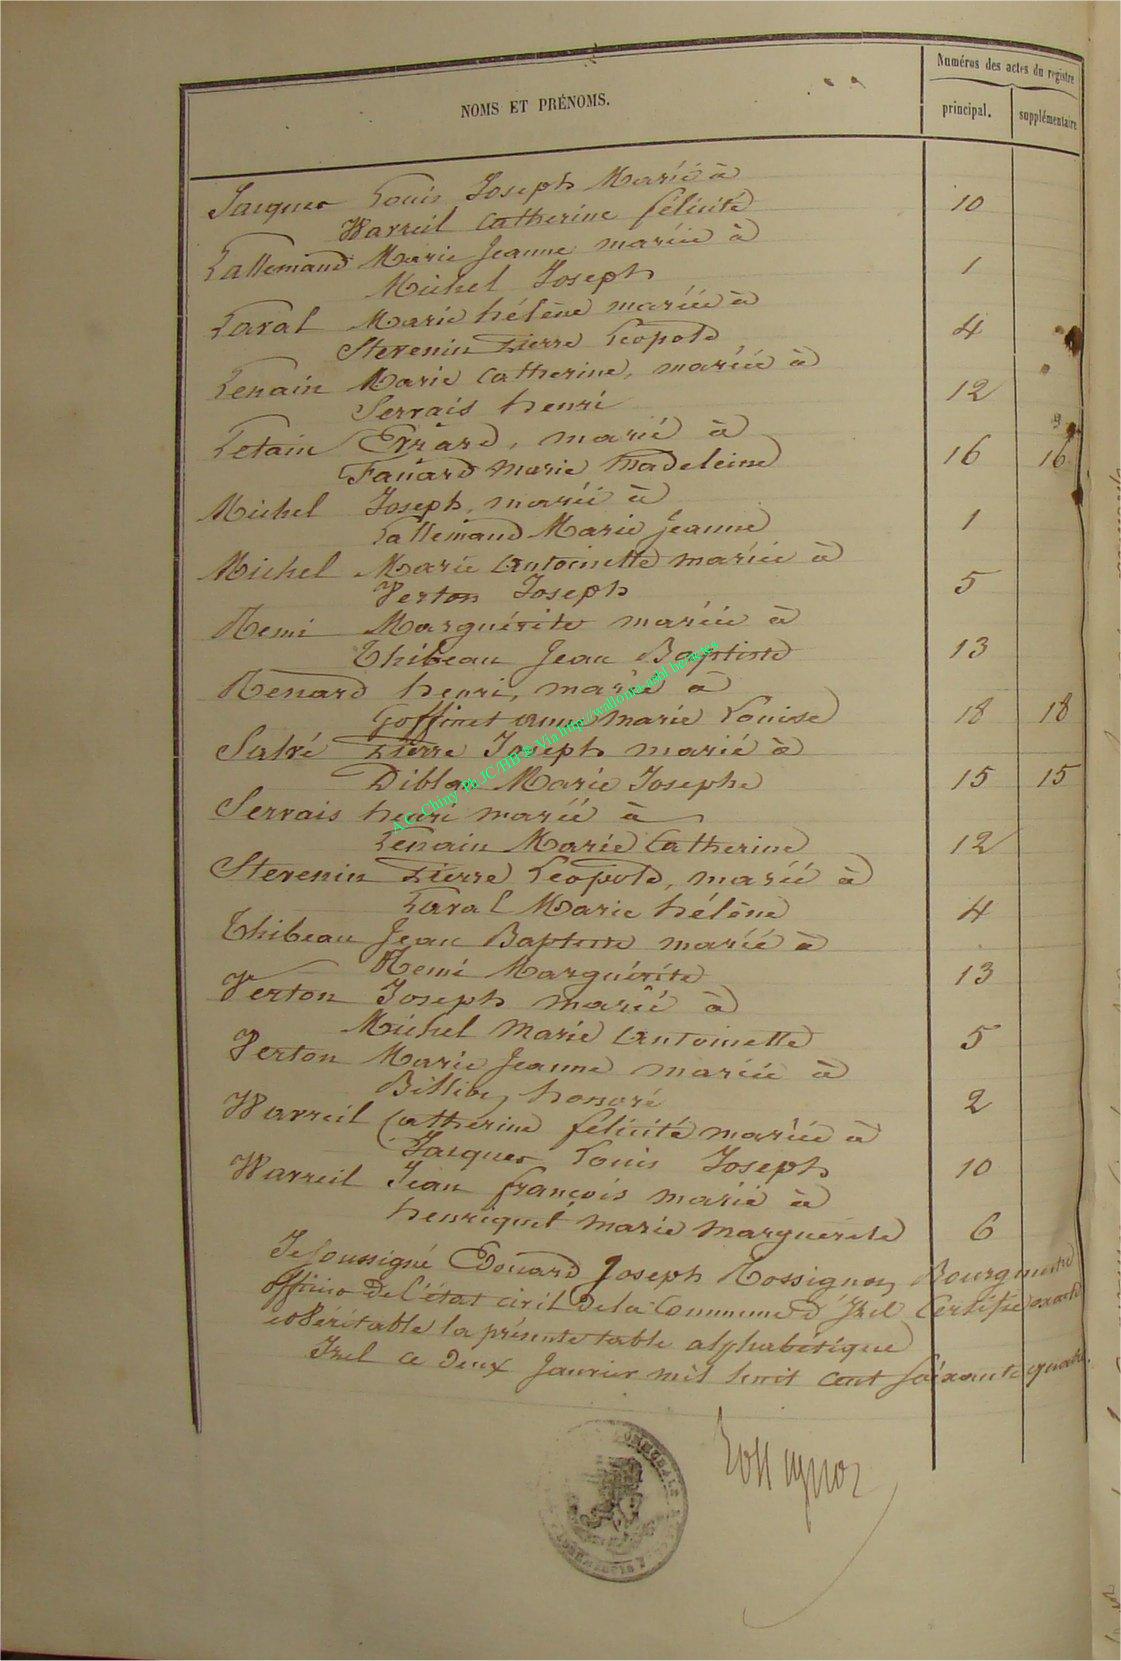 NOMS ET PRÉNOMS.
Numéros des actes du registre
principal.
supplémentaire
Jacques Louis Joseph Marié à 10
Warzeil Catherine félicité
Lallemand Marie Jeanne mariée à 1
Michel Joseph
Laval Marie hélène mariée à 4
Stevenin Pierre Léopold
Lenain Marie Catherine, mariée à 12
Servais henri
Letain Erard, marié à 16 16
Fanard marie Madeleine
Michel Joseph, marié à 1
Lallemand Marie Jeanne
Michel Marie Antoinette mariée à 5
Verton Joseph
Remi Marguérite mariée à 13
Thibeau Jean Baptiste
Renard henri, marié à 18 18
Goffinet anne marie Louise
Salré Pierre Joseph marié à 15 15
Marie Josephe
Servais henri marié à 12
Lenain Marie Catherine
Stevenin Pierre Léopold, marié à 4
Laval Marie hélène
Thibeau Jean Baptiste marié à 13
Remi Marguérite
Verton Joseph marié à 5
Michel Marie Antoinette
Verton Marie Jeanne mariée à 2
honoré
Warzeil Catherine félicité mariée à 10
Jacques Louis Joseph
Warzeil Jean françois marié à 6
henriquet marie marguerite
Je Soussigné Edouard Joseph Rossignon Bourgmestre
officier De l'état civil De la Commune d'Izel Certifie exacte
et Véritable la présente table alphabétique
Izel ce deux Janvier mil huit cent soixante quatre.
Rossignon